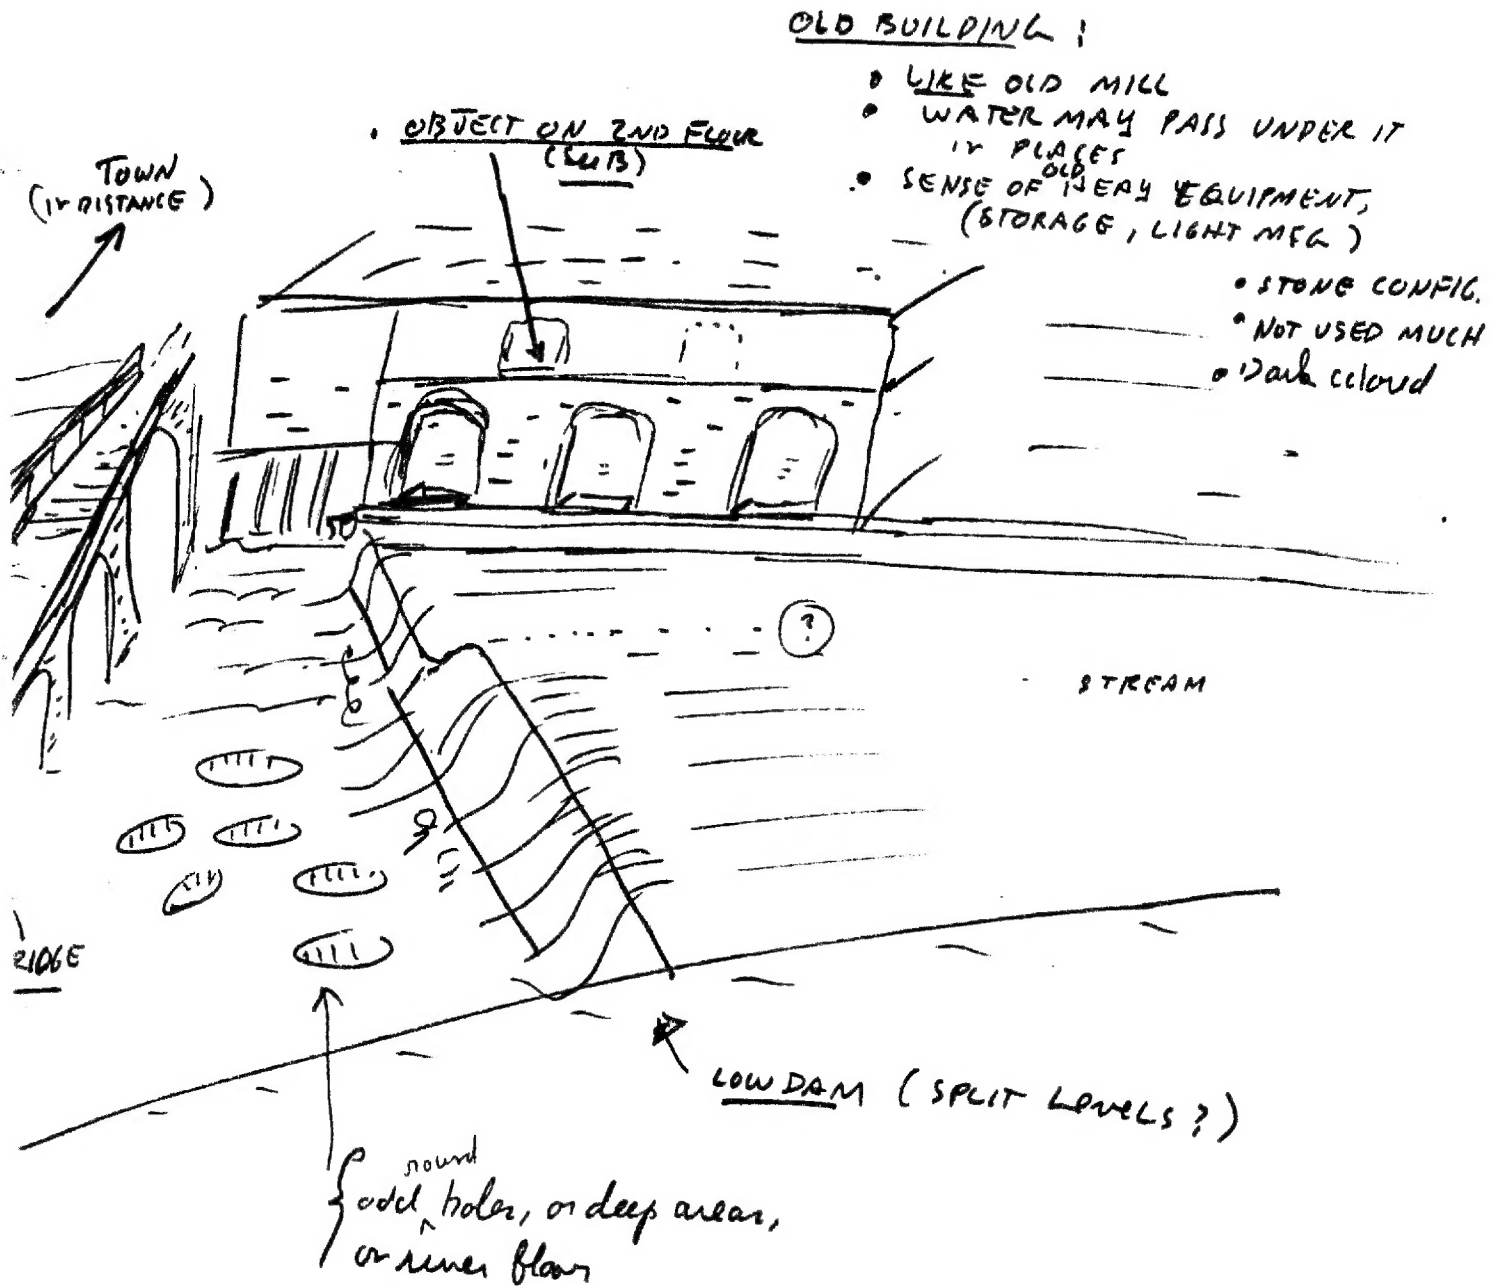 OLD BUILDING:
• LIKE OLD MILL
• WATER MAY PASS UNDER IT
in PLACES
• SENSE OF OLD HEAVY EQUIPMENT,
(STORAGE, LIGHT MFG)
• STONE CONFIG.
• NOT USED MUCH
• Dark
• OBJECT ON 2ND FLOOR
(SUB)
TOWN
(in DISTANCE)
?
STREAM
RIDGE
LOW DAM (SPLIT LEVELS?)
odd round holes, or deep areas,
on river floor